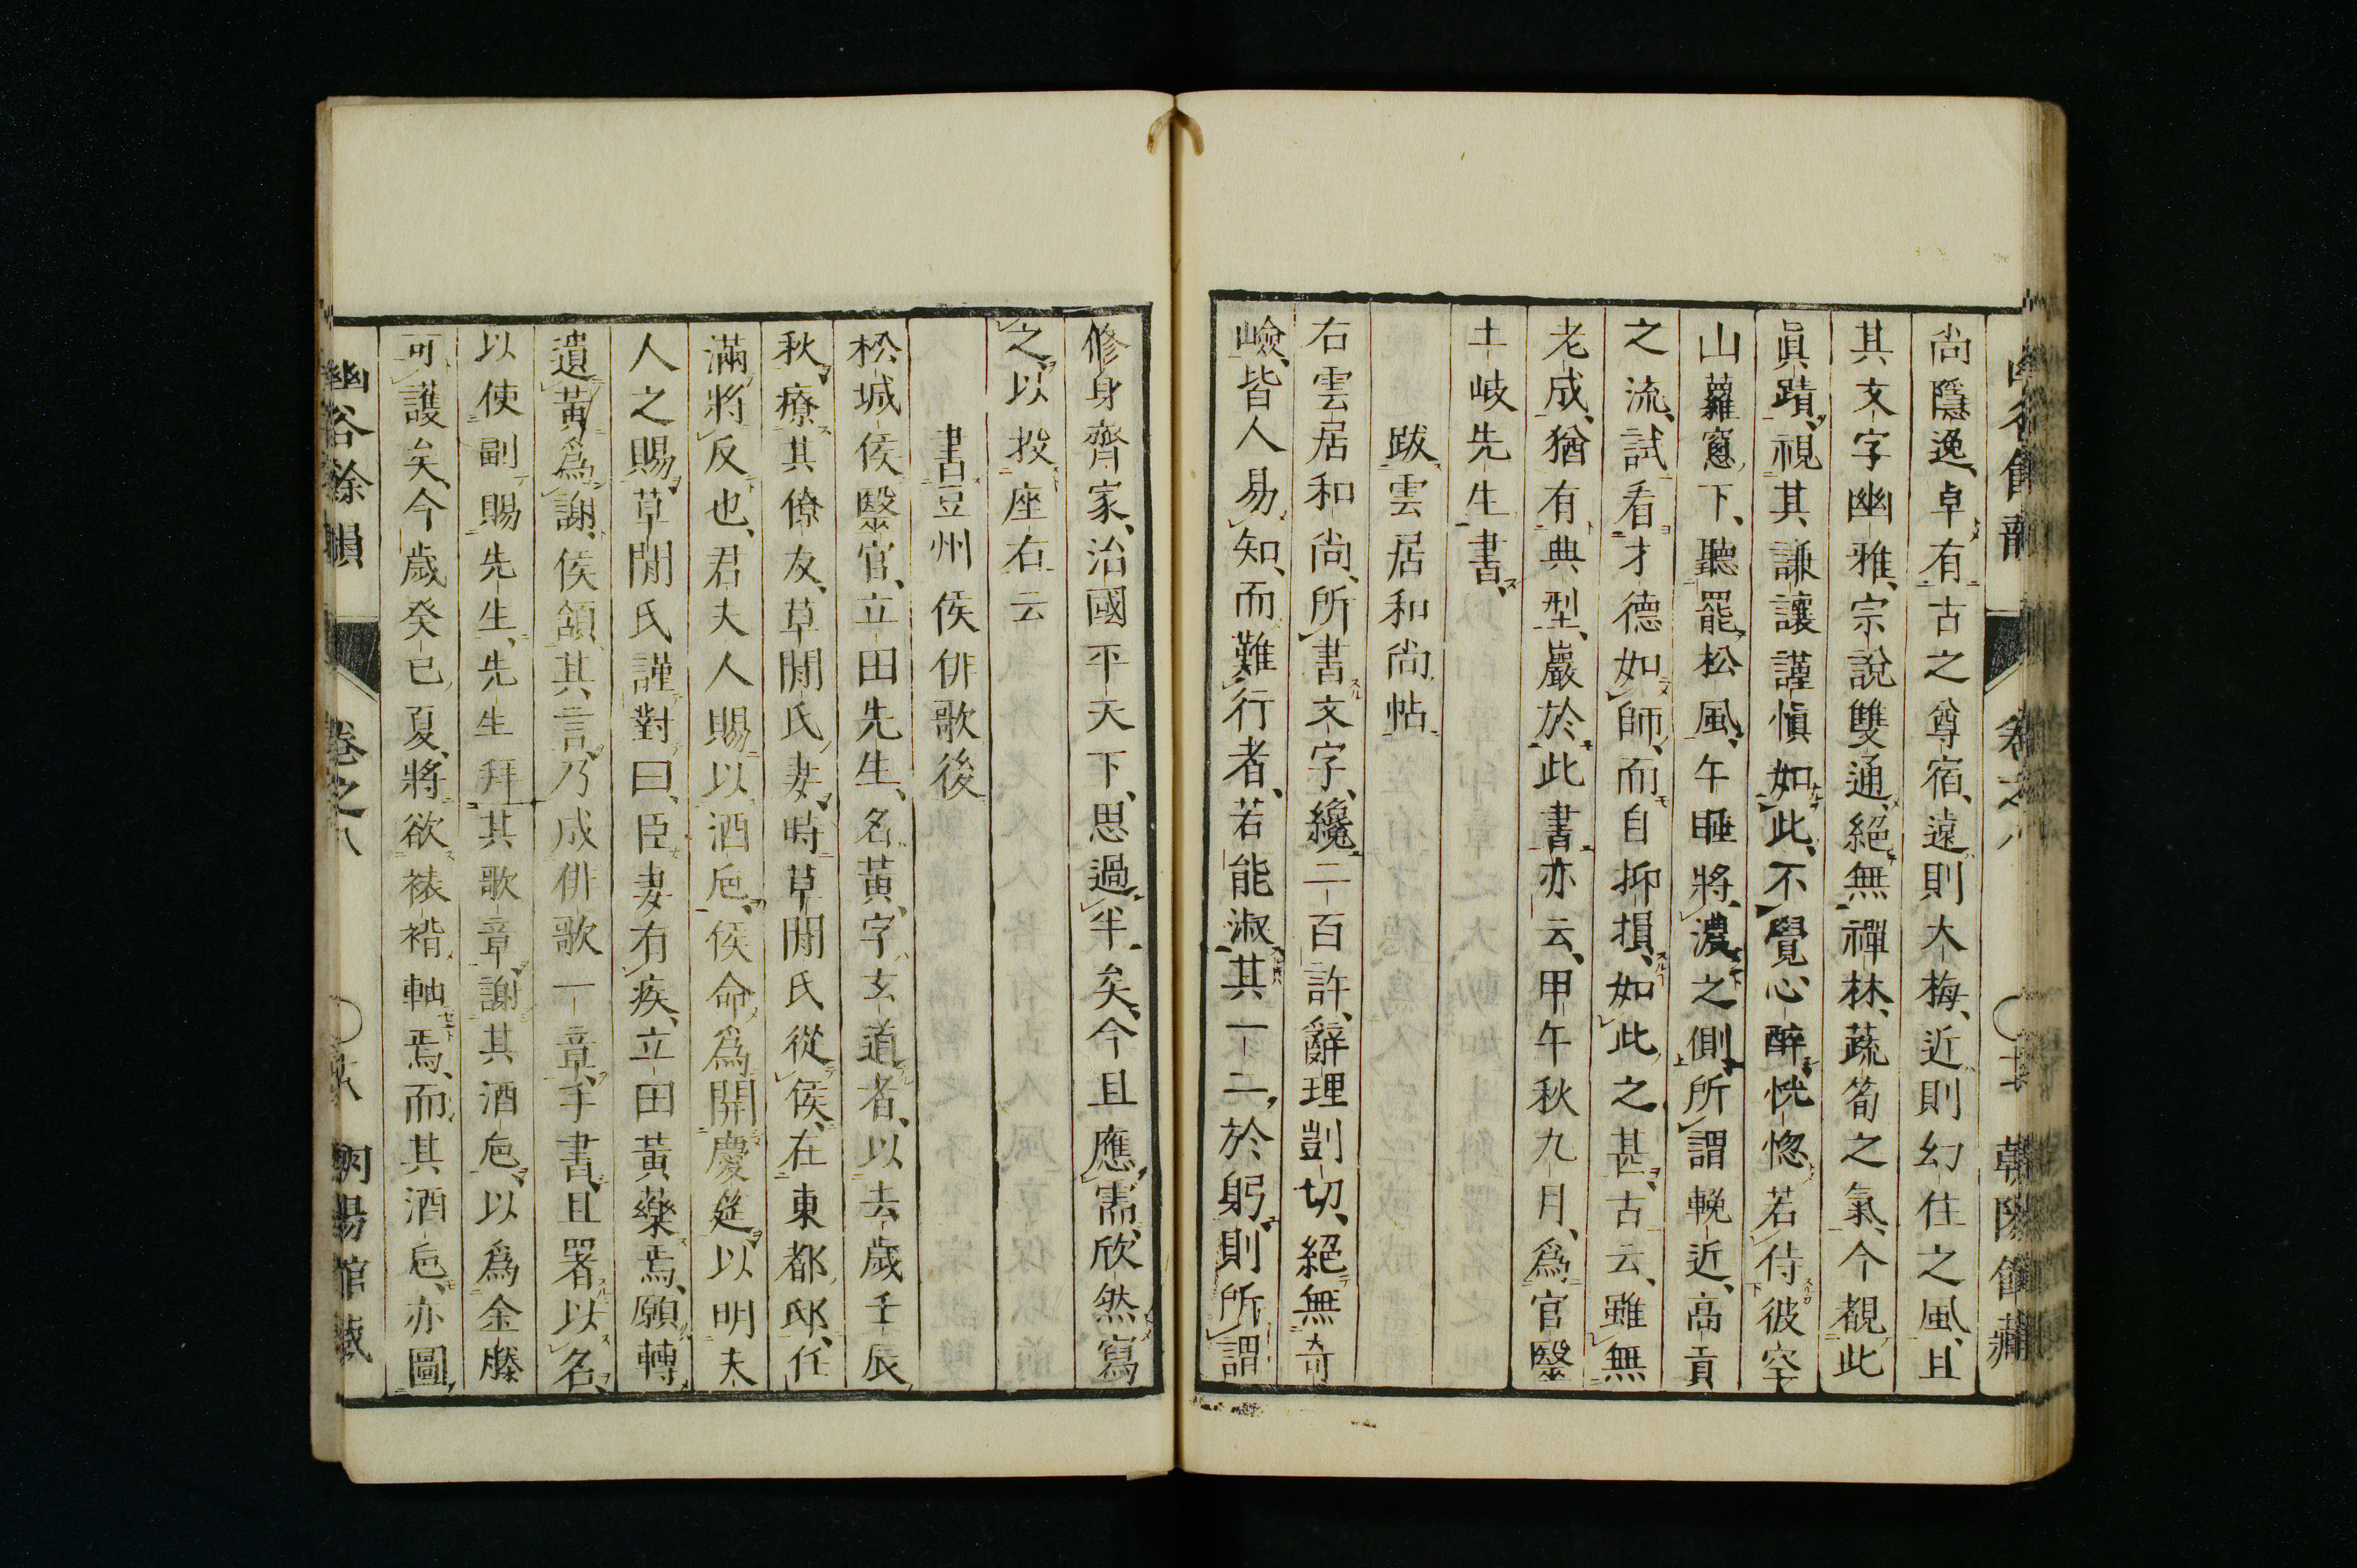 尚隱逸、卓有古之尊宿、遠則大梅、近則幻住之風、且
其文字幽雅、宗說雙通、絕無禪林、蔬筍之氣、今覩此
眞蹟、視其謙讓謹愼如此、不覺心醉、恍惚、若侍彼空
山蘿窻下、聽罷松風、午睡將濃之側、所謂輓近、高貢
之流、試看才德如師、而自抑損、如此之甚、古云、雖無
老成、猶有典型、嚴於此書、亦云、甲午秋九月、爲官醫
土岐先生書、
跋雲居和尚帖
右雲居和尚、所書文字、纔二百許、辭理剴切、絕無奇
嶮、皆人易知、而難行者、若能淑其一二、於躬、則所謂
修身齊家、治國平天下、思過半矣、今且應需、欣然寫
之、以投座右云
書豆州侯俳歌後
松城侯醫官、立田先生、名黃、字玄道者、以去歲壬辰
秋、療其僚友、草閒氏妻、時草閒氏從侯、在東都邸、任
滿將反也、君夫人賜以酒巵、侯命爲開慶筵、以明夫
人之賜、草閒氏謹對曰、臣妻有疾、立田黃藥焉、願轉
遺黃爲謝、侯頷其言、乃成俳歌一章、手書、且署以名、
以使副賜先生、先生拜其歌章、謝其酒巵、以爲金縢
可護矣、今歲癸巳夏、將欲裱褙軸焉、而其酒巵、亦圖
幽谷餘韻 卷之八